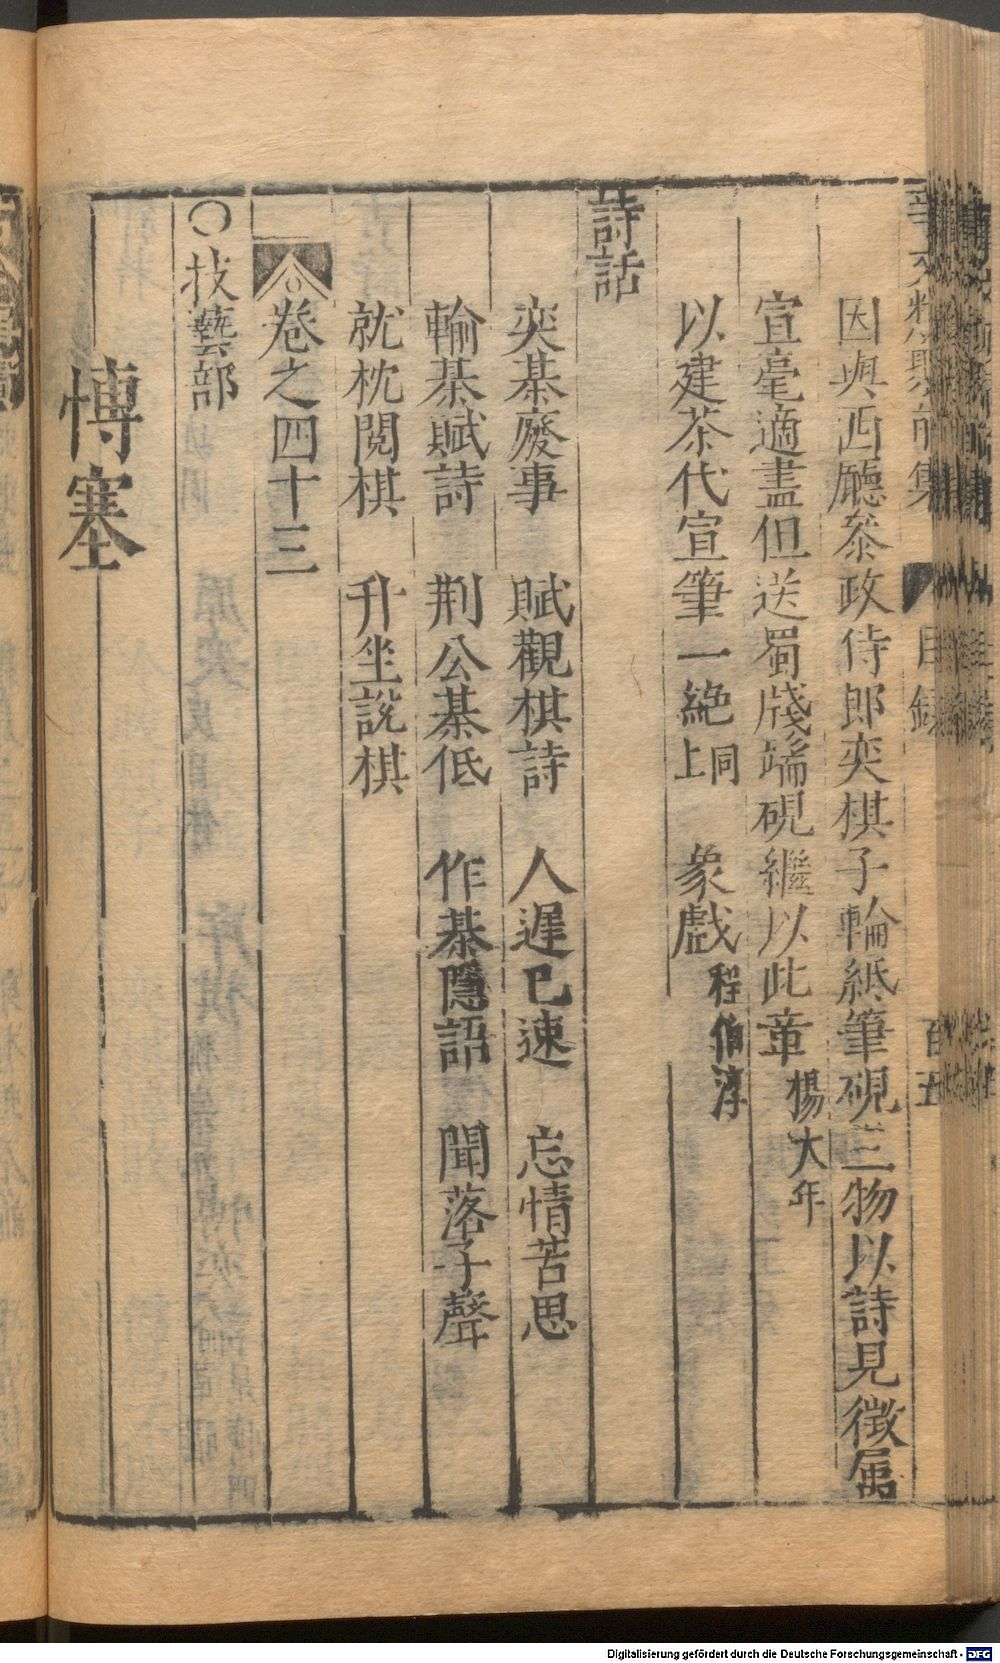 事文類聚前集 目録 百五
因與西廳參政侍郎奕棋子輸紙筆硯三物以詩見徵属
宣毫適盡但送蜀牋端硯繼以此章楊大年
以建茶代宣筆一絶同上 象戲程伯淳
詩話
奕棊廢事 賦觀棋詩 人遲已速 忘情苦思
輸棊賦詩 荆公棊低 作棊隱語 聞落子聲
就枕閱棋 升坐說棋
卷之四十三
○技藝部
愽塞
Digitalisierung gefördert durch die Deutsche Forschungsgemeinschaft - DFG